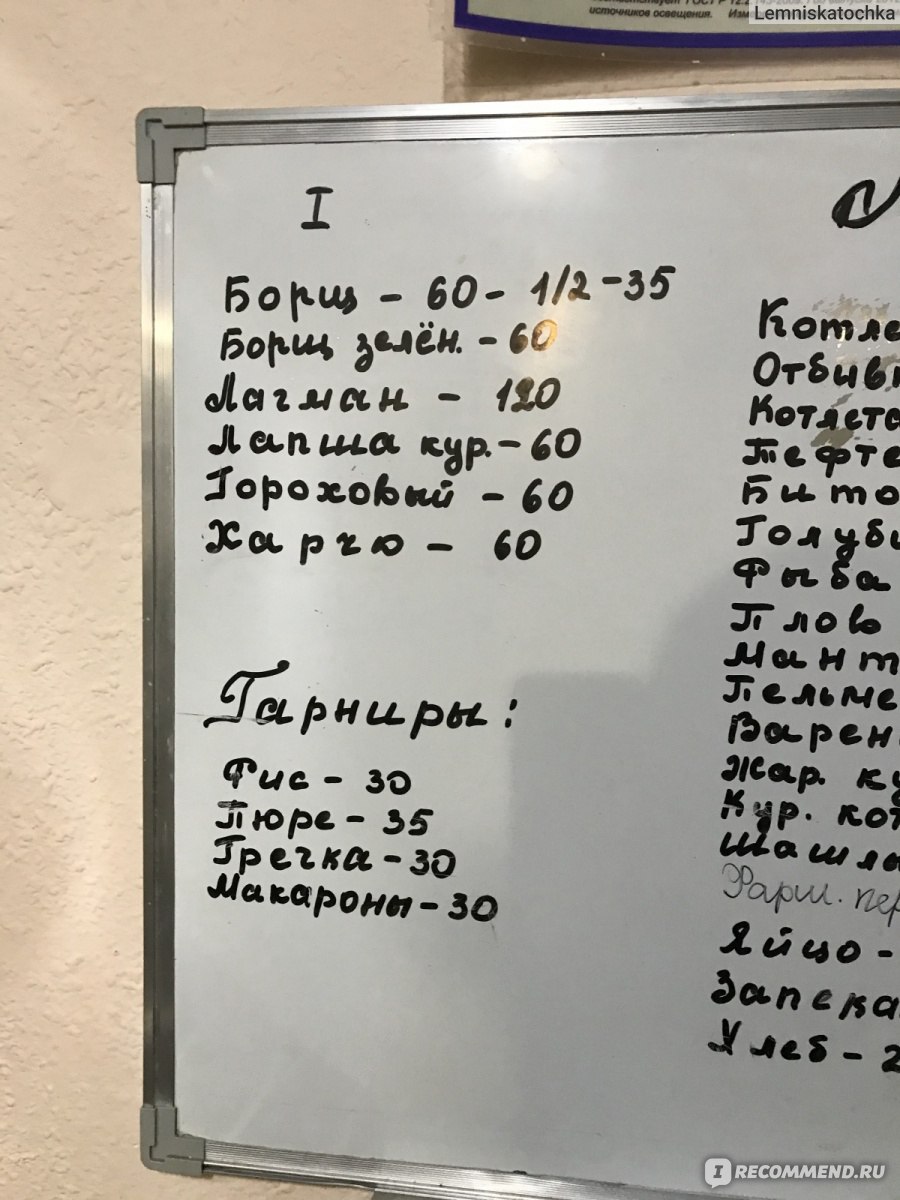 Lemniskatochka
источников освещения.
I
Борщ - 60 - 1/2 - 35
Борщ зелён. - 60
Лагман - 120
Лапша кур. - 60
Гороховый - 60
Харчо - 60
Гарниры:
Рис - 30
Пюре - 35
Гречка - 30
Макароны - 30
Котле
Отбивн
Котлета
Тефте
Бито
Голуб
Рыба
Плов
Мант
Пельме
Варен
Жар. ку
Кур. кот
Шашлы
Фарш. пер
Яйцо -
Запека
Хлеб - 2
IRECOMMEND.RU